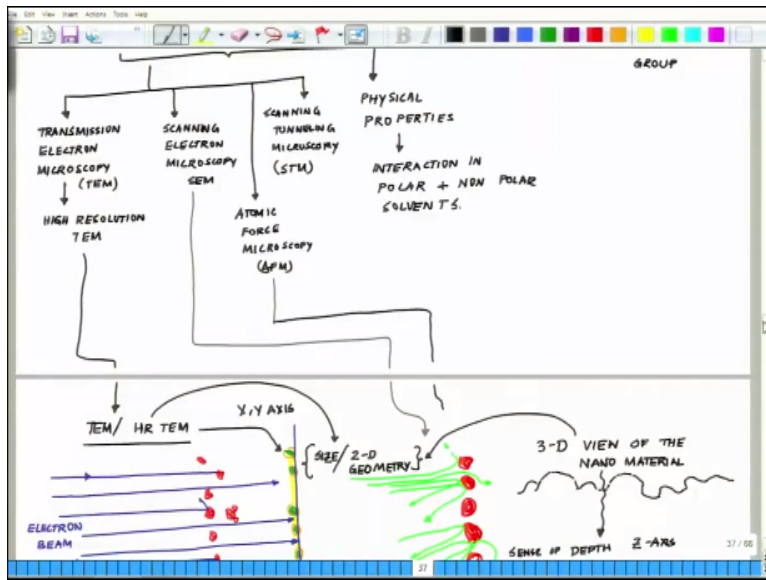 File Edit View Insert Actions Tools Help
GROUP
TRANSMISSION
ELECTRON
MICROSCOPY
(TEM)
HIGH RESOLUTION
TEM
SCANNING
ELECTRON
MICROSCOPY
SEM
ATOMIC
FORCE
MICROSCOPY
(AFM)
SCANNING
TUNNELING
MICRUSCOPY
(STM)
PHYSICAL
PROPERTIES
INTERACTION IN
POLAR + NON POLAR
SOLVENTS.
TEM/ HR TEM
X,Y AXIS
{SIZE/ 2-D
GEOMETRY}
3-D VIEW OF THE
NANO MATERIAL
ELECTRON
BEAM
SENSE OF DEPTH
37 / 66
37